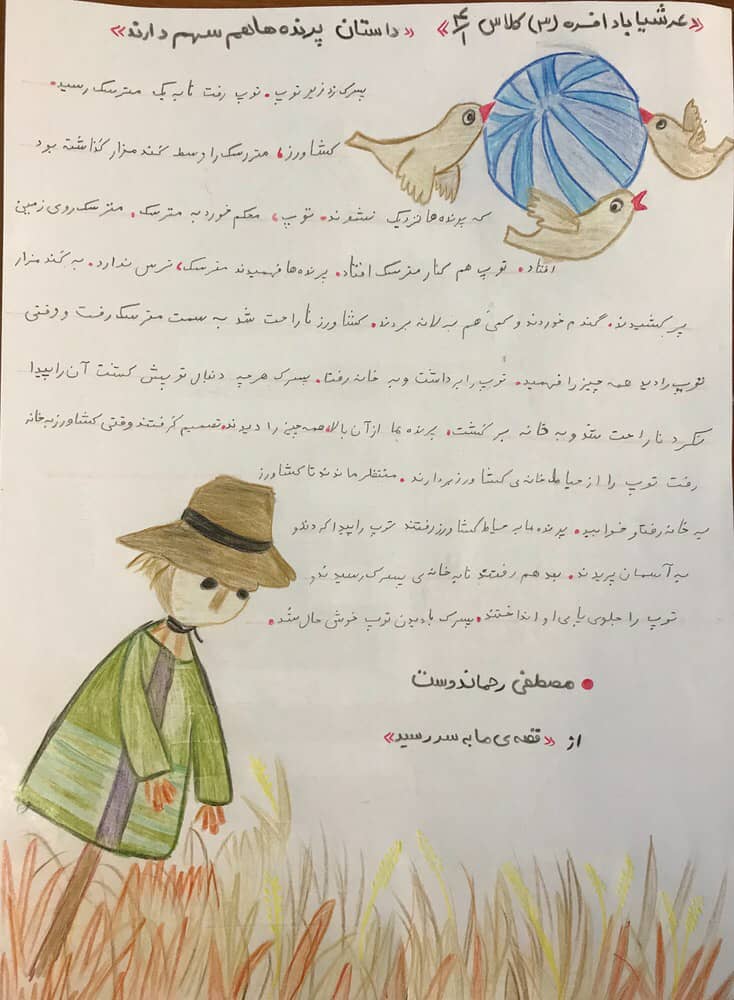 «عرشیا بادافره (س) کلاس ۴/۱» «داستان پرنده ها هم سهم دارند»
پسرک زد زیر توپ. توپ رفت تا به یک مترسک رسید.
کشاورز، مترسک را وسط گندمزار گذاشته بود
که پرنده ها نزدیک نشوند. توپ، محکم خورد به مترسک. مترسک روی زمین
افتاد. توپ هم کنار مترسک افتاد. پرنده ها فهمیدند مترسک، ترس ندارد. به گندمزار
پر کشیدند. گندم خوردند و کمی هم به لانه بردند. کشاورز ناراحت شد به سمت مترسک رفت و وقتی
توپ را دید همه چیز را فهمید. توپ را برداشت و به خانه رفت. پسرک هر چه دنبال توپش گشت آن را پیدا
نکرد ناراحت شد و به خانه برگشت. پرنده ها از آن بالا، همه چیز را دیدند. تصمیم گرفتند وقتی کشاورز به خانه
رفت توپ را از حیاط خانه ی کشاورز بردارند. منتظر ماندند تا کشاورز
به خانه رفت و خوابید. پرنده ها به حیاط کشاورز رفتند توپ را پیدا کردند و
به آسمان پریدند. بعد هم رفتند تا به خانه ی پسرک رسیدند و
توپ را جلوی پای او انداختند. پسرک با دیدن توپ خوش حال شد.
● مصطفی رحماندوست
از «قصه ی ما به سر رسید»